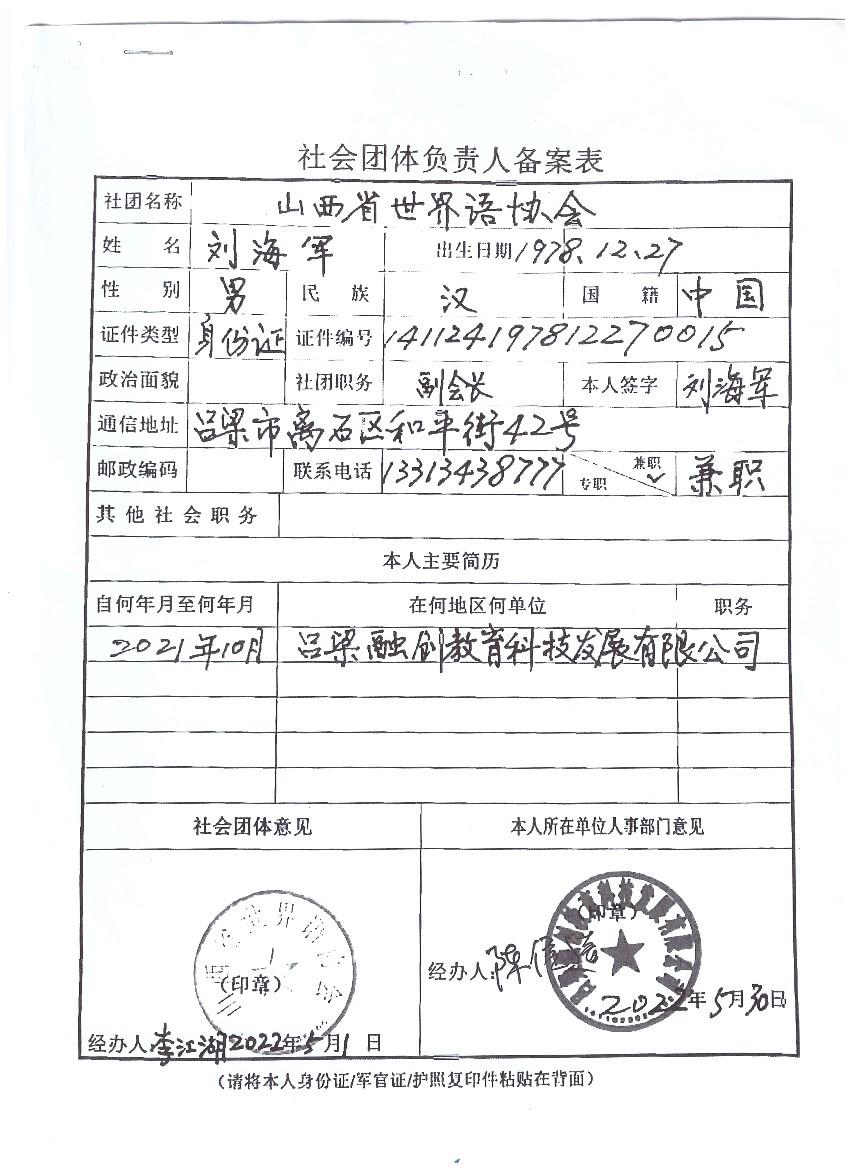 社会团体负责人备案表
社团名称 山西省世界语协会
姓名 刘海军 出生日期 1978.12.27
性别 男 民族 汉 国籍 中国
证件类型 身份证 证件编号 141124197812270015
政治面貌 社团职务 副会长 本人签字 刘海军
通信地址 吕梁市离石区和平街42号
邮政编码 联系电话 13313438777 专职 兼职 ✓ 兼职
其他社会职务
本人主要简历
自何年月至何年月 在何地区何单位 职务
2021年10月 吕梁融创教育科技发展有限公司
社会团体意见 本人所在单位人事部门意见
山西省世界语协会
(印章)
经办人:李江湖 2022年5月1日
教育科技发展有限公司
(印章)
经办人:陈
2022年5月30日
(请将本人身份证/军官证/护照复印件粘贴在背面)